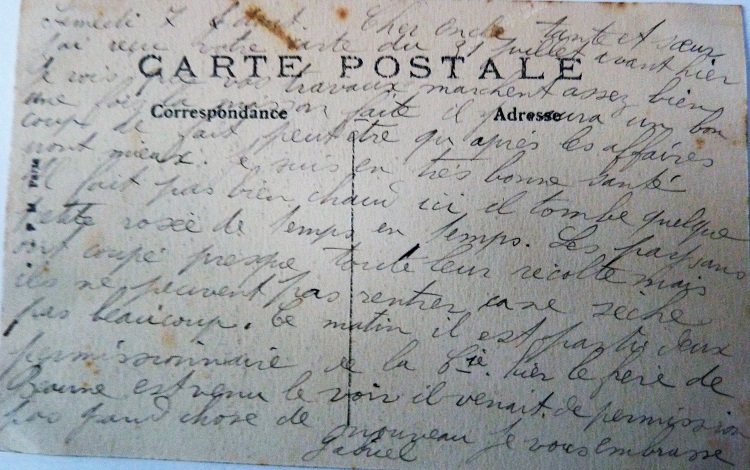 Samedi 7 Août Cher oncle tante et sœur
J'ai reçu votre carte du 31 juillet avant hier
CARTE POSTALE
Je vois que vos travaux marchent assez bien
Correspondance
Adresse
une fois la moisson faite il y aura un bon
coup de fait peut être qu'après les affaires
iront mieux. Je suis en très bonne santé
Il fait pas bien chaud ici il tombe quelque
petite rosée de temps en temps. Les paysans
ont coupé presque toute leur récolte mais
ils ne peuvent pas rentrer ça ne sèche
pas beaucoup. Ce matin il est parti deux
permissionnaire de la Cie. hier le père de
est venu le voir il venait de permission
pas grand chose de nouveau je vous embrasse
Gabriel
PARIS